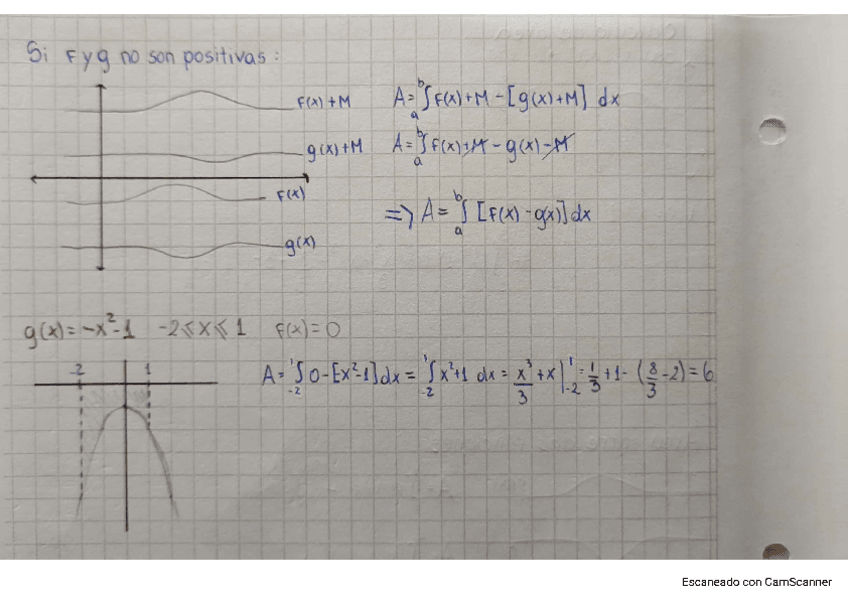 Si f y g no son positivas :
f(x) + M
g(x) + M
f(x)
g(x)
A = ∫ₐᵇ f(x) + M - [g(x) + M] dx
A = ∫ₐᵇ f(x) + M - g(x) - M
=> A = ∫ₐᵇ [f(x) - g(x)] dx
g(x) = -x² - 1 -2 ⩽ x ⩽ 1 f(x) = 0
-2 1
A = ∫₋₂¹ 0 - [x² - 1] dx = ∫₋₂¹ x² + 1 dx = x³/3 + x |₋₂¹ = 1/3 + 1 - (8/3 - 2) = 6
Escaneado con CamScanner